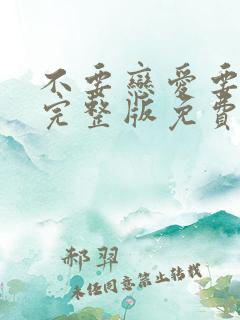 不要戀愛要
完整版免費
郝羿
未经同意禁止转载